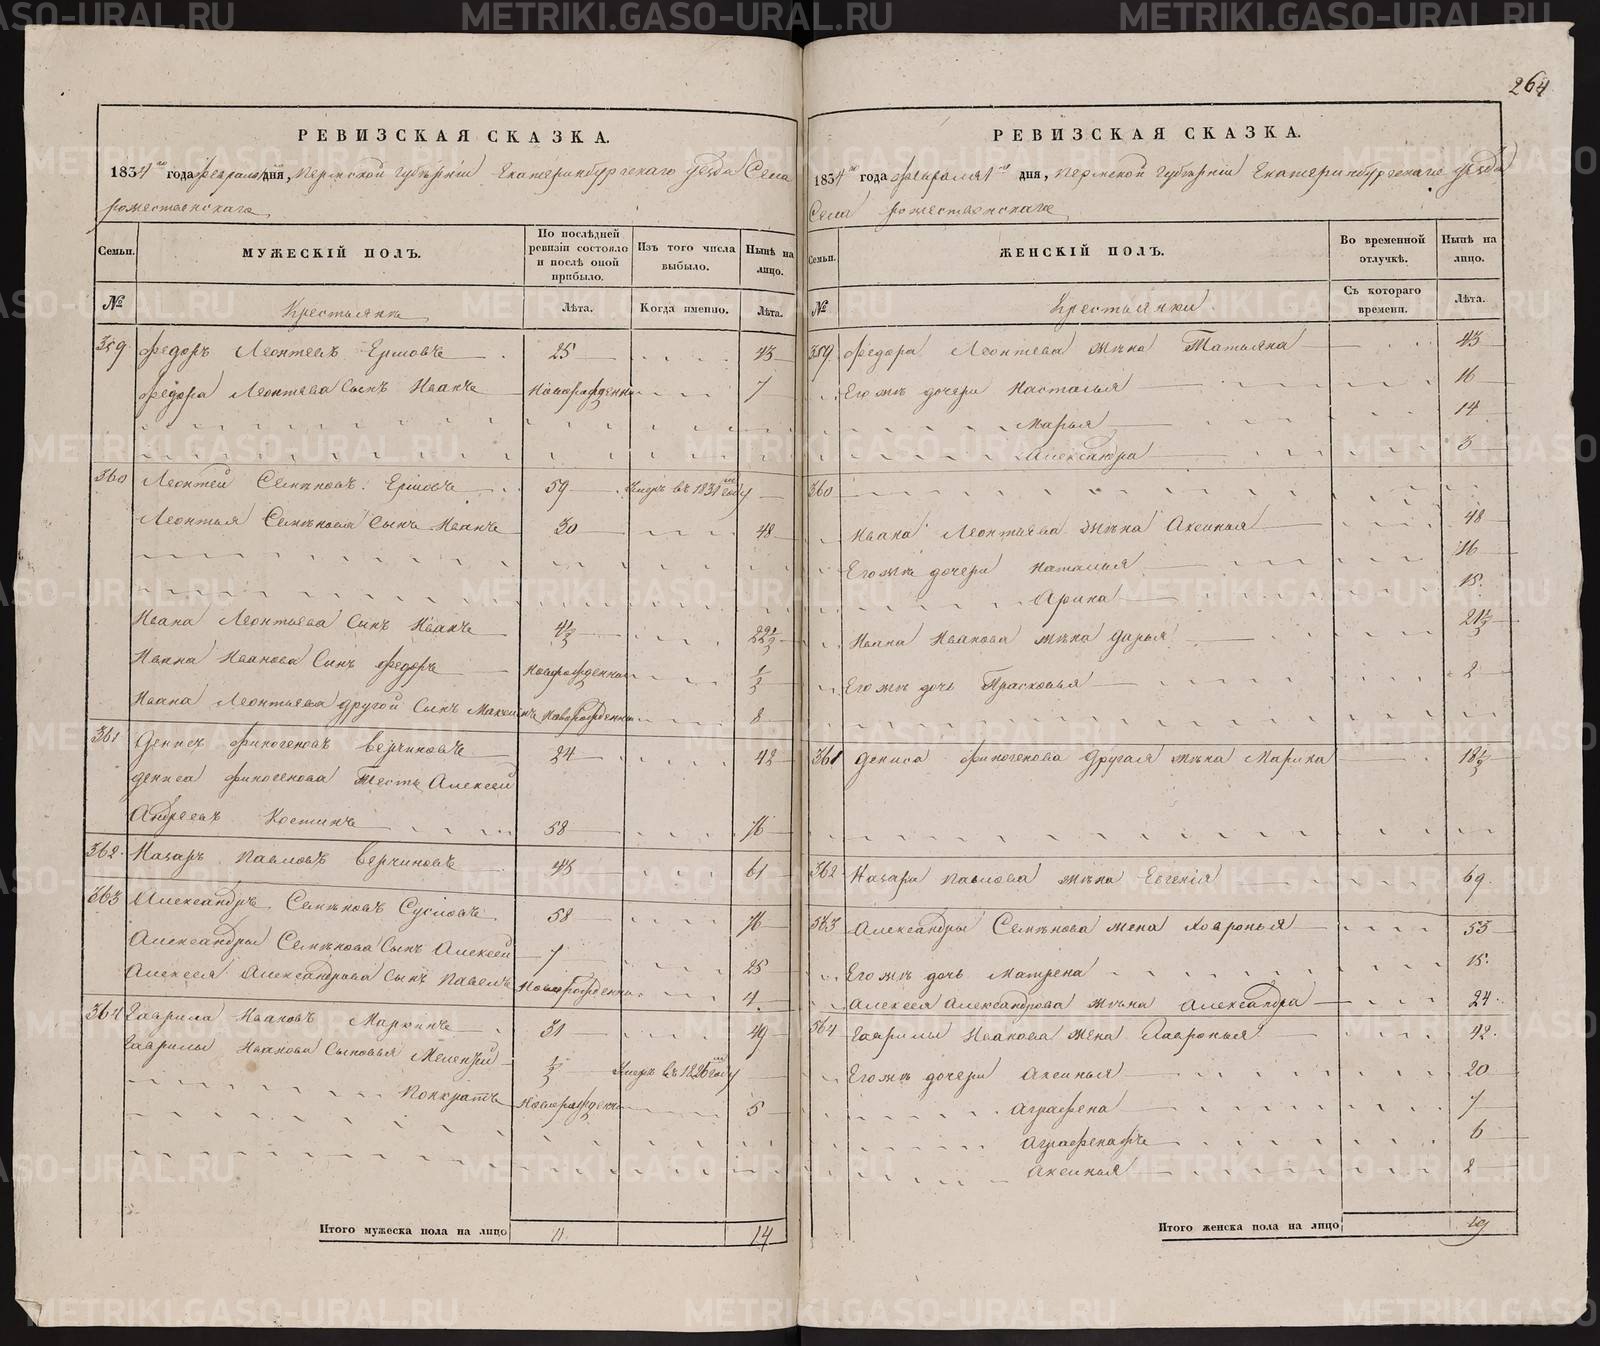 264
РЕВИЗСКАЯ СКАЗКА.
1834 го года февраля 1 дня, Пермской Губерніи Екатеринбургскаго уѣзда Села
рожественскаго
Семьи. МУЖЕСКІЙ ПОЛЪ. По послѣдней ревизіи состояло и послѣ оной прибыло. Изъ того числа выбыло. Нынѣ на лицо.
№ Крестьянъ Лѣта. Когда именно. Лѣта.
359 Федоръ Леонтьевъ Ершовъ 25 43
Федора Леонтьева Сынъ Иванъ Новорожденны 7
360 Леонтей Семеновъ Ершовъ 59 Умеръ въ 1831 м году
Леонтья Семенова Сынъ Иванъ 30 48
Ивана Леонтьева Сынъ Иванъ 4½ 22½
Ивана Иванова Сынъ Федоръ Новорожденны ½
Ивана Леонтьева другой Сынъ Новорожденны 8
361 Денисъ Финогеновъ 24 42
Дениса Финогенова Тесть Алексей
Андреевъ Костинъ 58 76
362 Назаръ Павловъ 43 61
363 Александръ Семеновъ Сусловъ 58 76
Александры Семенова Сынъ Алексей 7 25
Алексея Александрова Сынъ Павелъ Новорожденны 4
364 Гаврила Ивановъ 31 49
Гаврилы Иванова Сыновья ½ Умеръ въ 1826 м году
Понкратъ Новорожденны 5
Итого мужеска пола на лицо 11 14
РЕВИЗСКАЯ СКАЗКА.
1834 го года февраля 1 го дня, Пермской Губерніи Екатеринбургскаго уѣзда
Села рожественскаго
Семьи. ЖЕНСКІЙ ПОЛЪ. Во временной отлучкѣ. Нынѣ на лицо.
№ Крестьянки Съ котораго времени. Лѣта.
359 Федора Леонтьева жена Татьяна 43
Егожъ дочери Насталья 16
Марья 14
Александра 3
360
Ивана Леонтьева жена Аксинья 48
Егожъ дочери Наталья 16
Арина 15
Ивана Иванова жена Дарья 21½
Егожъ дочь Прасковья 2
361 Дениса Финогенова другая жена Марина 18½
362 Назара Павлова жена Евгенія 69
363 Александры Семенова жена Ховронья 53
Егожъ дочь Матрена 15
Алексея Александрова жена Александра 24
364 Гаврилы Иванова жена 42
Егожъ дочери Аксинья 20
Аграфена 7
6
Аксинья 2
Итого женска пола на лицо 19
METRIKI.GASO-URAL.RU